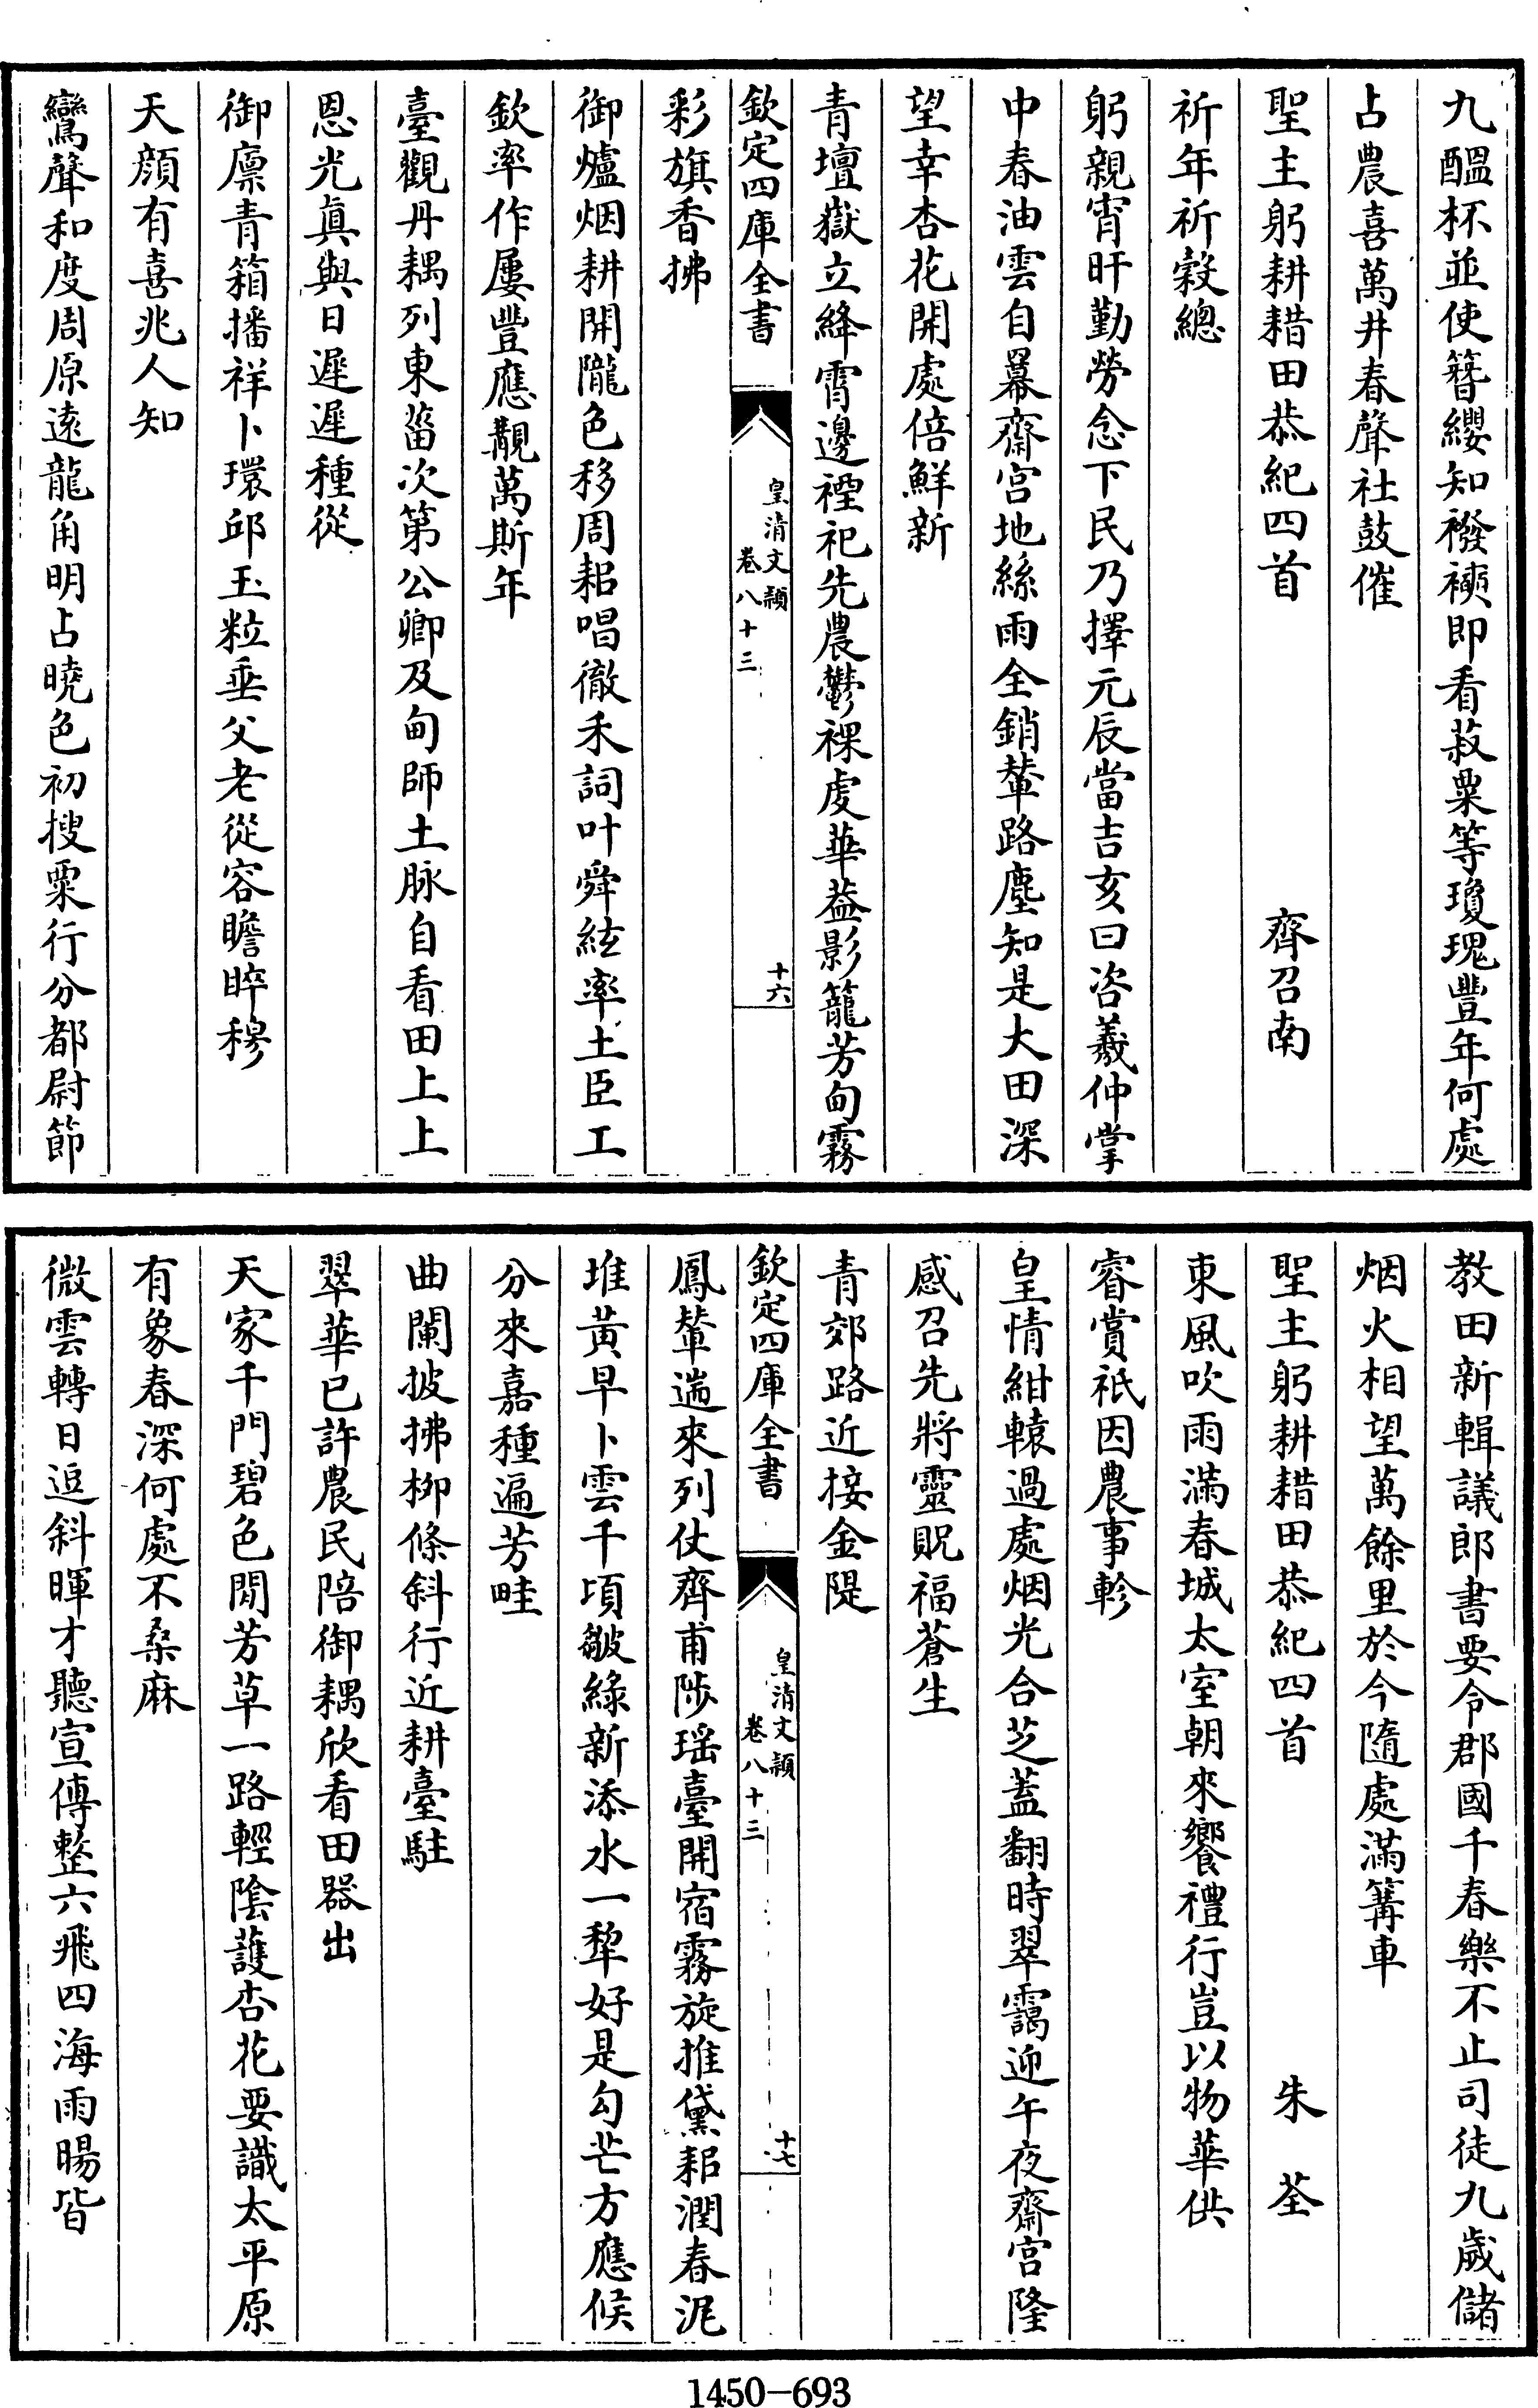 九醖杯並使簪纓知襏襫即看菽粟等瓊瑰豐年何處
占農喜萬井春聲社鼓催
聖主躬耕耤田恭紀四首 齊召南
祈年祈穀總
躬親宵旰勤勞念下民乃擇元辰當吉亥曰咨羲仲掌
中春油雲自羃齋宫地絲雨全銷輦路塵知是大田深
望幸杏花開處倍鮮新
青壇嶽立絳霄邊禋祀先農鬱祼虔華葢影籠芳甸霧
欽定四庫全書 皇清文穎 卷八十三 十六
彩旗香拂
御爐烟耕開隴色移周耜唱徹禾詞叶舜絃率土臣工
欽率作屢豐應覩萬斯年
臺觀丹耦列東菑次第公卿及甸師土脉自看田上上
恩光眞與日遲遲種從
御廪青箱播祥卜環邱玉粒垂父老從容瞻晬穆
天顔有喜兆人知
鸞聲和度周原遠龍角明占曉色初搜粟行分都尉節
教田新輯議郎書要令郡國千春樂不止司徒九歲儲
烟火相望萬餘里於今隨處滿篝車
聖主躬耕耤田恭紀四首 朱荃
東風吹雨滿春城太室朝來饗禮行豈以物華供
睿賞祇因農事軫
皇情紺轅過處烟光合芝蓋翻時翠靄迎午夜齋宫隆
感召先將靈貺福蒼生
青郊路近接金隄
欽定四庫全書 皇清文穎 卷八十三 十七
鳳輦遄來列仗齊甫陟瑶臺開宿霧旋推黛耜潤春泥
堆黃早卜雲千頃皺綠新添水一犂好是勾芒方應候
分來嘉種遍芳畦
曲闌披拂柳條斜行近耕臺駐
翠華已許農民陪御耦欣看田器出
天家千門碧色閒芳草一路輕陰護杏花要識太平原
有象春深何處不桑麻
微雲轉日逗斜暉才聽宣傳整六飛四海雨暘皆
1450-693